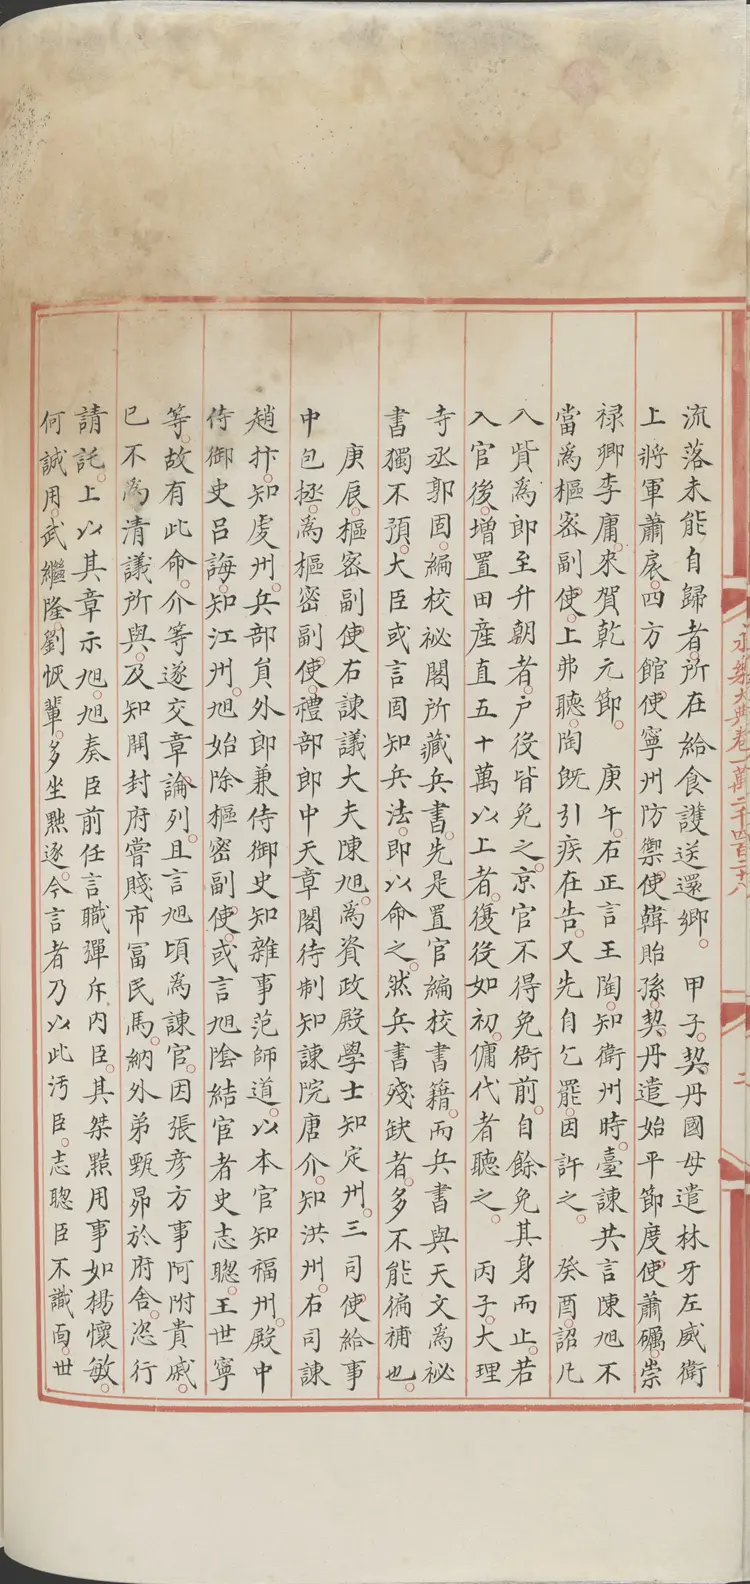 永樂大典卷一萬二千四百二十八
二
流落未能自歸者。所在給食護送還鄉。　甲子。契丹國母遣林牙左威衛
上將軍蕭扆。四方館使寧州防禦使韓貽孫。契丹遣始平節度使蕭礪。崇
禄卿李庸。來賀乾元節。　庚午。右正言王陶。知衛州時。臺諫共言陳旭不
當爲樞密副使。上弗聽。陶既引疾在告。又先自乞罷。因許之。　癸酉。詔凡
入貲爲郎至升朝者。户役皆免之。京官不得免衙前。自餘免其身而止。若
入官後。增置田産直五十萬以上者。復役如初。傭代者聽之。　丙子。大理
寺丞郭固。編校祕閣所藏兵書。先是置官編校書籍。而兵書與天文爲祕
書獨不預。大臣或言固知兵法。即以命之。然兵書殘缺者。多不能徧補也。
　庚辰。樞密副使右諫議大夫陳旭。爲資政殿學士知定州。三司使給事
中包拯。爲樞密副使。禮部郎中天章閣待制知諫院唐介。知洪州。右司諫
趙抃。知虔州。兵部員外郎兼侍御史知雜事范師道。以本官知福州。殿中
侍御史吕誨。知江州。旭始除樞密副使。或言旭陰結宦者史志聰。王世寧
等。故有此命。介等遂交章論列。且言旭頃爲諫官。因張彦方事阿附貴戚。
已不爲清議所與。及知開封府嘗賤市冨民馬。納外弟甄昻於府舍。恣行
請託。上以其章示旭。旭奏臣前任言職彈斥内臣。其桀黠用事如楊懷敏。
何誠用。武繼隆。劉恢輩。多坐黜逐。今言者乃以此汚臣。志聰臣不識面。世